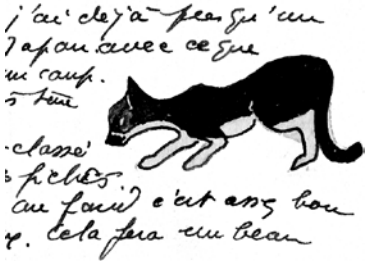 j'ai déjà presqu'un
Japon avec ce que
un coup.
classé
fichés.
au fond c'est assez bon
cela fera un beau